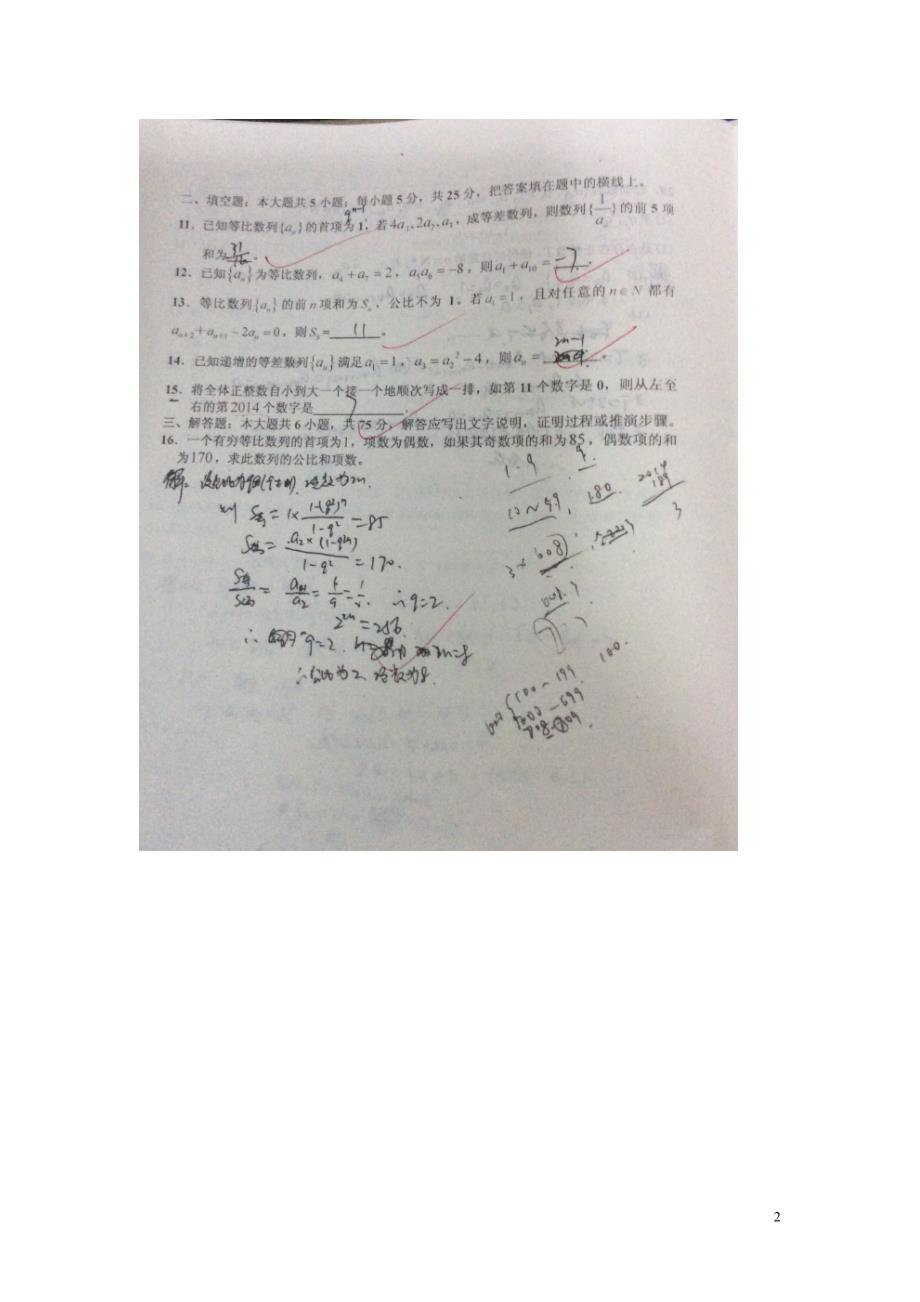 二、填空题:本大题共5小题,每小题5分,共25分,把答案填在题中的横线上。
q^{n-1}
11.已知等比数列{aₙ}的首项为1,若4a₁、2a₂、a₃,成等差数列,则数列{1/aₙ}的前5项
和为 31/16 。
12.已知{aₙ}为等比数列,a₄+a₇=2,a₅a₆=-8,则a₁+a₁₀= -7 .
13.等比数列{aₙ}的前n项和为Sₙ,公比不为1。若a₁=1,且对任意的n∈N都有
aₙ₊₂+aₙ₊₁-2aₙ=0,则S₅= 11 。
14.已知递增的等差数列{aₙ}满足a₁=1,a₃=a₂²-4,则aₙ= 2n-1
15.将全体正整数自小到大一个接一个地顺次写成一排,如第11个数字是0,则从左至
右的第2014个数字是 7 .
三、解答题:本大题共6小题,共75分,解答应写出文字说明,证明过程或推演步骤。
16.一个有穷等比数列的首项为1,项数为偶数,如果其奇数项的和为85,偶数项的和
为170,求此数列的公比和项数。
解:设公比为q(q≠1),项数为2n.
则 S奇=1×(1-(q²)ⁿ)/(1-q²)=85
S偶=a₂×(1-q²ⁿ)/(1-q²)=170.
S奇/S偶=a₁/a₂=1/q=1/2. ∴q=2.
2²ⁿ=256.
∴公比为2,项数为8.
1-9 9.
10~99, 180. 2014
189
3
3× 608
100~199 100.
2